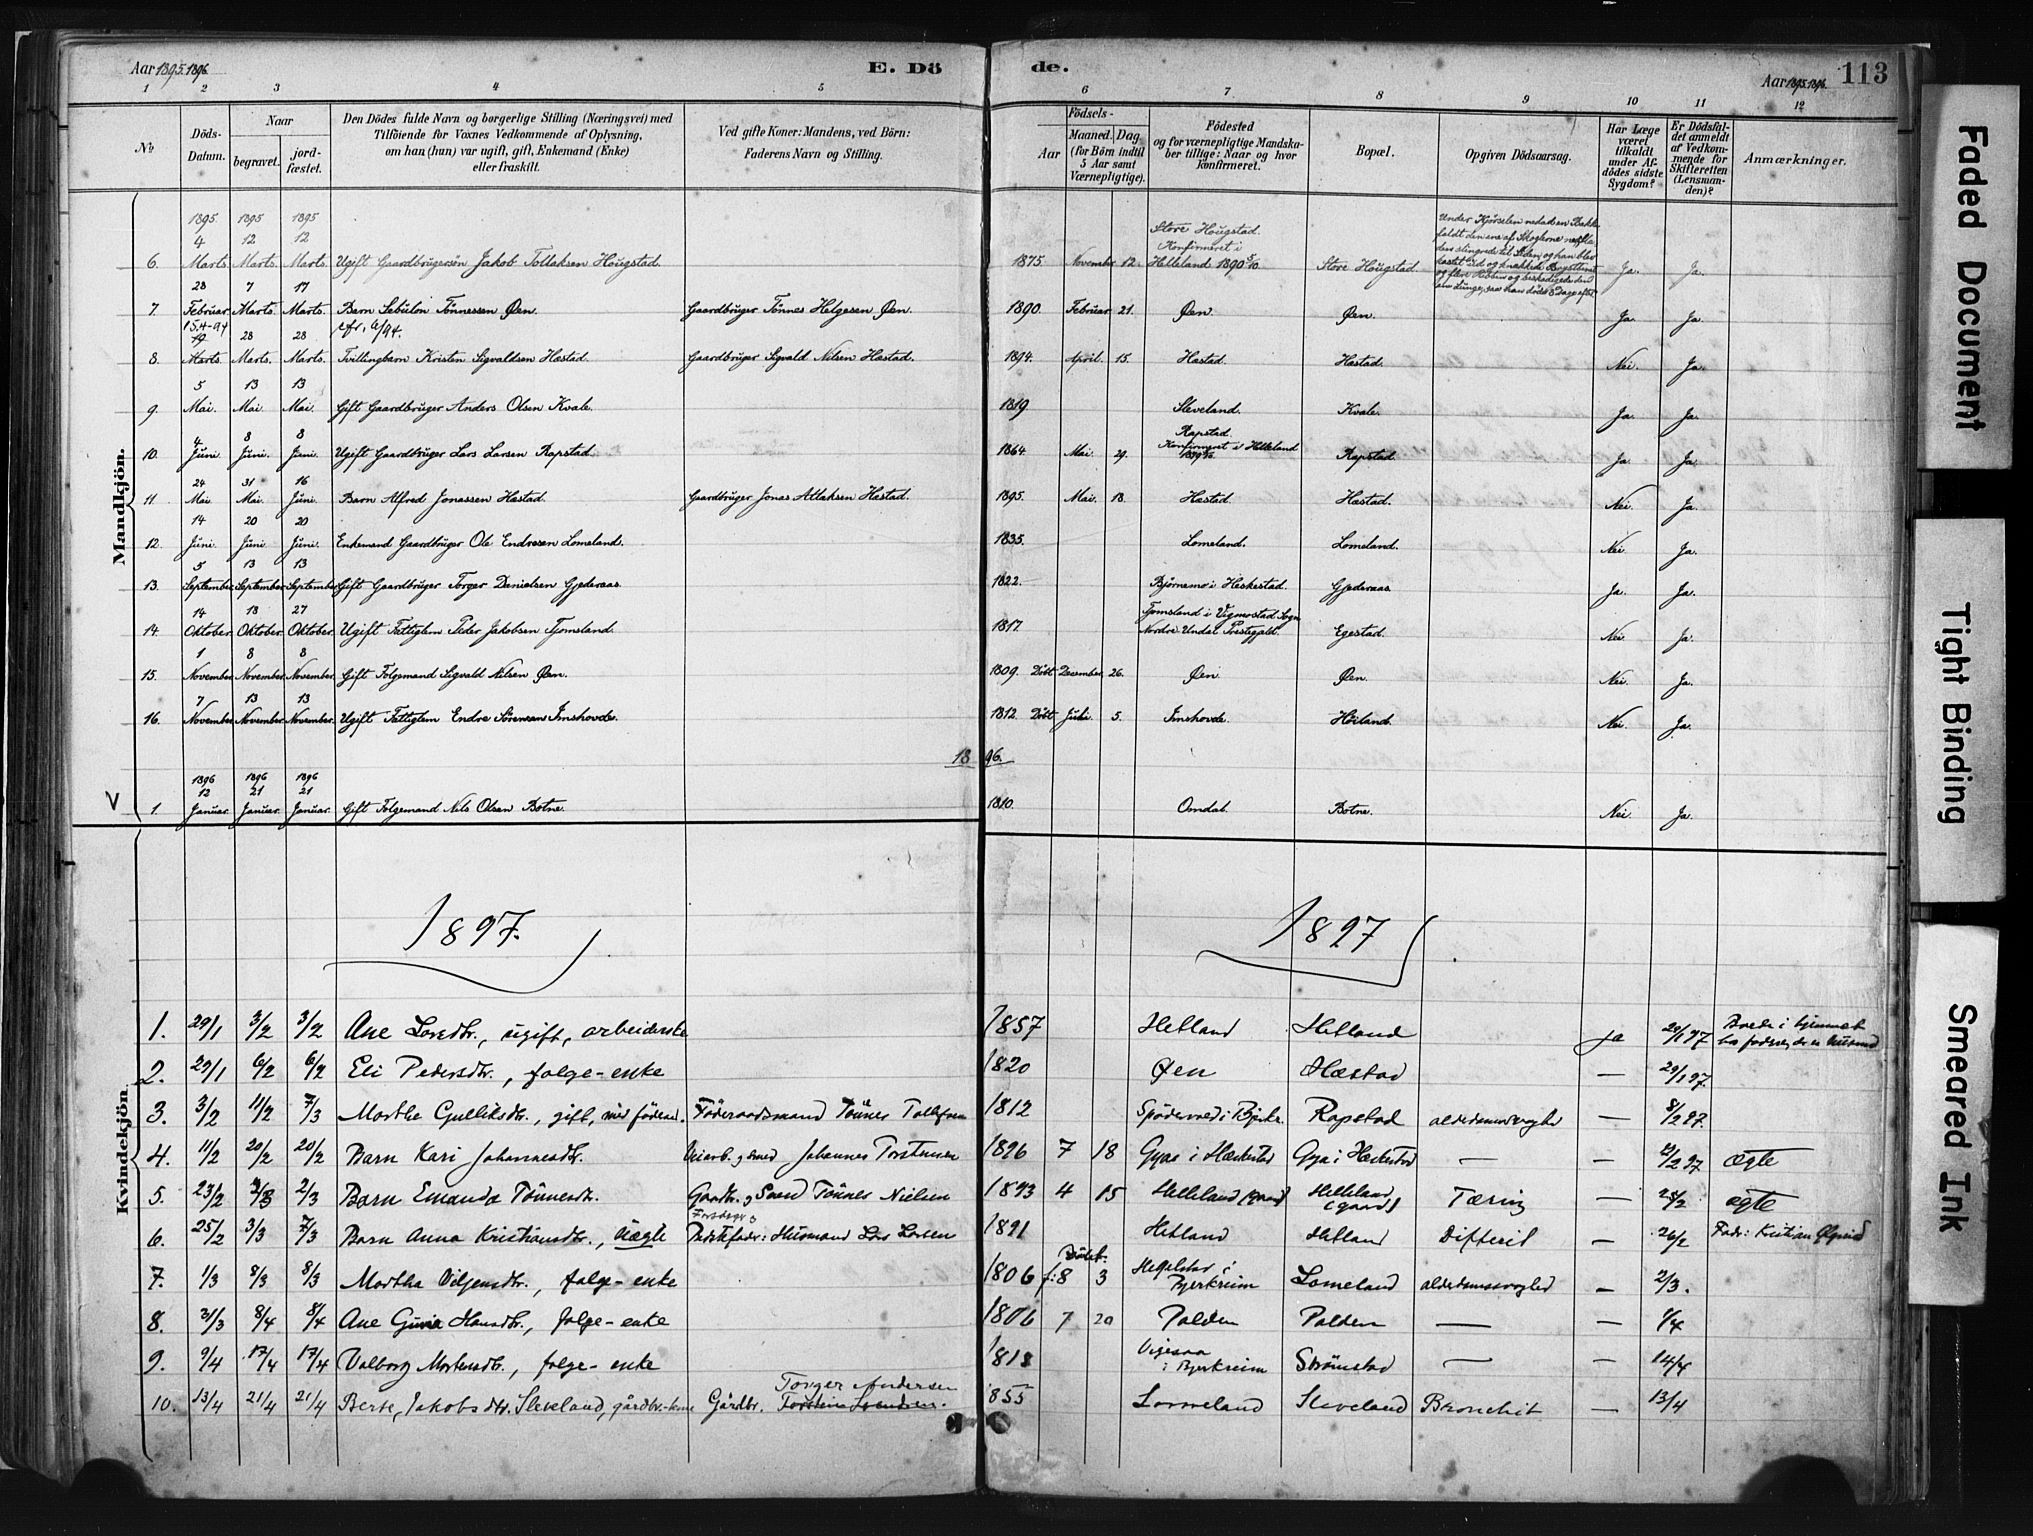 Aar 1895. 1896.
E. Dö de.
Aar 1895. 1896.
113
1 2 3 4 5 6 7 8 9 10 11 12
№
Döds-Datum.
Naar
begravet.
jord-fæstet.
Den Dödes fulde Navn og borgerlige Stilling (Næringsvei) med
Tilföiende for Voxnes Vedkommende af Oplysning,
om han (hun) var ugift, gift, Enkemand (Enke)
eller fraskilt.
Ved gifte Koner: Mandens, ved Börn:
Faderens Navn og Stilling.
Födsels-
Aar
Maaned. Dag
(for Börn indtil
5 Aar samt
Værnepligtige).
Födested
og for værnepligtige Mandska-
ber tillige: Naar og hvor
konfirmeret.
Bopæl.
Opgiven Dödsaarsag.
Har Læge
været
tilkaldt
under Af-
dödes sidste
Sygdom?
Er Dödsfal-
det anmeldt
af Vedkom-
mende for
Skifteretten
(Lensman-
den)?
Anmærkninger.
Mandkjön.
6. 1895 4 Marts 1895 12 Marts. 1895 12 Marts. Ugift Gaardbrugersøn Jakob Tollaksen Hougstad. 1875. November 12. Store Hougstad. Konfirmeret i Helleland 1890 5/10 Store Hougstad. Under Kjørselen nedad en Bakke faldt den ene af Skoglerne Ja. Ja.
7. 28 Februar 7 Marts. 17 Marts. Barn Sebulon Tønnessen Øen. Gaardbruger Tønnes Helgesen Øen. 1890. Februar 21. Øen. Øen. Ja. Ja.
8. 15.4-94 19 Marts. 28 Marts. 28 Marts. cfr. 6/94. Tvillingbarn Kristen Sigvaldsen Hæstad. Gaardbruger Sigvald Nilsen Hæstad. 1894. April. 15. Hæstad. Hæstad. Nei. Ja.
9. 5 Mai. 13 Mai. 13 Mai. Gift Gaardbruger Anders Olsen Kvale. 1819 Sleveland. Kvale. Ja. Ja.
10. 4 Juni. 8 Juni. 8 Juni. Ugift Gaardbruger Lars Larsen Rapstad. 1864 Mai. 29. Rapstad. Konfirmeret i Helleland Rapstad. Ja. Ja.
11. 24 Mai 31 Mai 16 Juni. Barn Alfred Jonassen Hæstad. Gaardbruger Jonas Atlaksen Hæstad. 1895. Mai. 18. Hæstad. Hæstad. Nei. Ja.
12. 14 Juni. 20 Juni 20 Juni. Enkemand Gaardbruger Ole Endresen Lomeland. 1835. Lomeland. Lomeland. Nei. Ja.
13. 5 September 13 September 13 September Gift Gaardbruger Torger Danielsen Gjederaas. 1822. Bjørnemo i Heskestad. Gjederaas. Ja. Ja.
14. 14 Oktober. 18 Oktober. 27 Oktober. Ugift Fattiglem Peder Jakobsen Tjomsland. 1817. Tjomsland i Vigmostad Sogn Nordre Undal Prestegjæld. Egestad. Nei. Ja.
15. 1 November 8 November 8 November. Gift Folgemand Sigvald Nilsen Øen. 1809. Døbt December. 26. Øen. Øen. Nei. Ja.
16. 7 November 13 November. 13 November. Ugift Fattiglem Endre Sørensen Imshovde. 1812. Døbt Juli. 5. Imshovde. Høiland. Nei. Ja.
1896.
V 1. 1896 12 Januar. 1896 21 Januar. 1896 21 Januar. Gift Folgemand Nils Olsen Botne. 1810. Omdal. Botne. Nei. Ja.
Kvindekjön.
1897. 1897
1. 29/1 3/2 3/2 Ane Larsdtr., ugift, arbeiderske 1857 Hetland Hetland ja 29/1 97
2. 29/1 6/2 6/2 Eli Pedersdtr., folge-enke 1820 Øen Hæstad — 29/1 97.
3. 3/2 11/2 7/3 Marthe Gulliksdtr., gift, med föderaad. Föderaadsmand Tönnes Tollefsen 1812 Rapstad alderdomssvaghed — 8/2 97.
4. 11/2 20/2 20/2 Barn Kari Johannesdtr. Johannes Torstensen 1896 7 18 Gyae i Heskestad Gya i Heskestad — — 12/2 97 ægte
5. 23/2 2/3 2/3 Barn Emanda Tönnesdtr. Gaardbr. og Smed Tönnes Nielsen 1893 4 15 Helleland (gaard) Helleland (gaard) Tæring — 25/2 ægte
6. 25/2 3/3 7/3 Barn Anna Kristiansdtr., Uægte Bedstefader: Husmand Lars Larsen 1891 Hetland Hetland Difterit — 26/2 Fader: Kristian
7. 1/3 8/3 8/3 Martha Viljensdtr., folge-enke 1806 f: 8 3 Døbt. Hegelstad i Bjerkreim Lomeland alderdomssvaghed — 2/3.
8. 31/3 8/4 8/4 Ane Hansdtr., folge-enke 1806 7 20 Polden Polden — — 1/4
9. 9/4 17/4 17/4 Valborg Mortensdtr., folge-enke 1818 Vigesaa i Bjerkreim Strömstad — — 14/4
10. 13/4 21/4 21/4 Berte, Jakobsdtr. Sleveland, gårdbr.-kone Gårdbr. Torger Andersen Torstein Svendsen. 1855 Lomeland Sleveland Bronchit — 13/4
Faded Document
Tight Binding
Smeared Ink